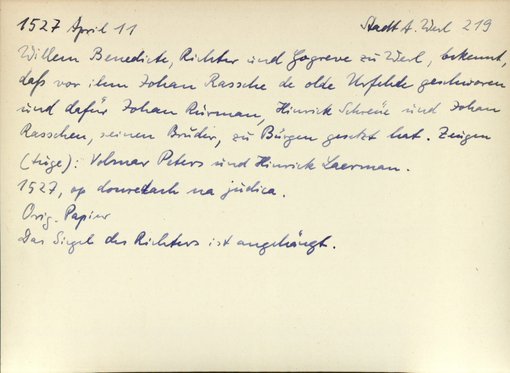 1527 April 11 Stadt A. Werl 219
Willem Benedicte, Richter und Gogreve zu Werl, bekennt,
daß vor ihm Johan Rassche de olde Urfehde geschworen
und dafür Johan Rurman, Hinrick Schreue und Johan
Rasschen, seinen Bruder, zu Bürgen gesetzt hat. Zeugen
(tüge): Volmar Peters und Hinrick Laerman.
1527, op donredach na judica.
Orig. Papier
Das Siegel des Richters ist angehängt.